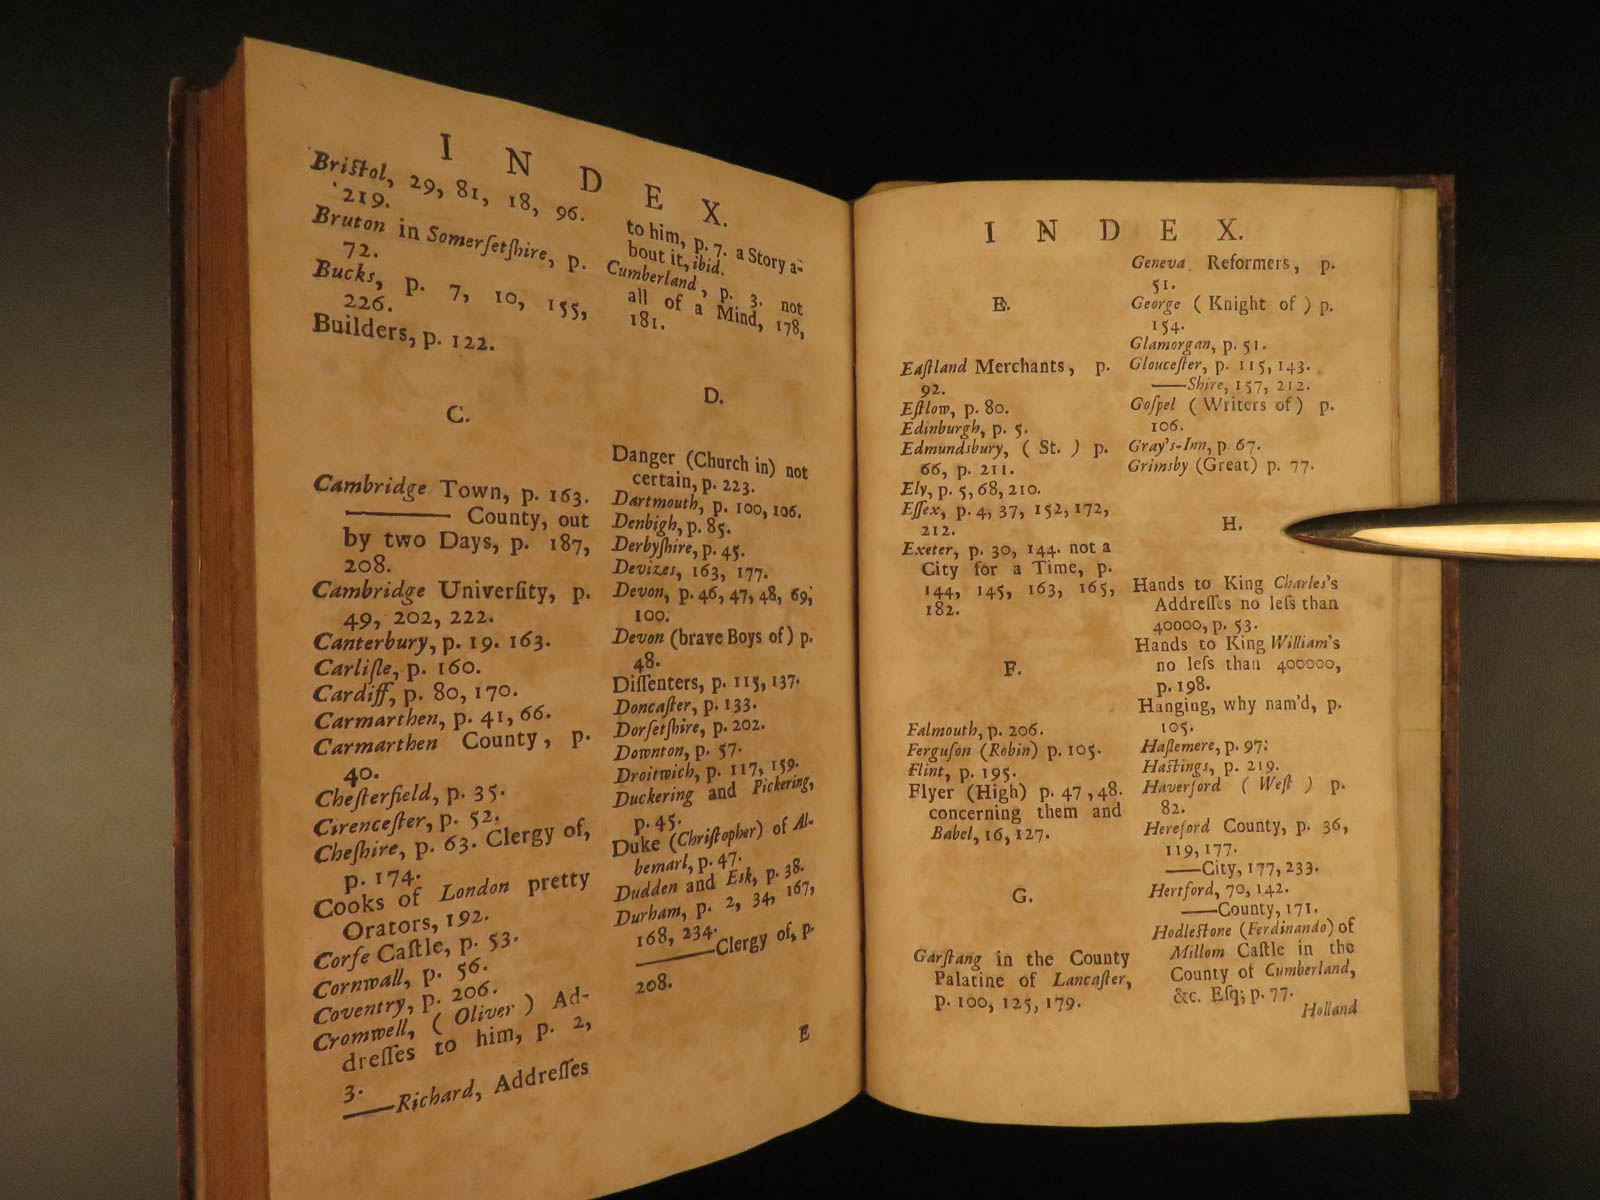 INDEX.
Briſtol, 29, 81, 18, 96.
219.
Bruton in Somerſetſhire, p.
72.
Bucks, p. 7, 10, 155,
226.
Builders, p. 122.
C.
Cambridge Town, p. 163.
—— County, out
by two Days, p. 187,
208.
Cambridge Univerſity, p.
49, 202, 222.
Canterbury, p. 19. 163.
Carliſle, p. 160.
Cardiff, p. 80, 170.
Carmarthen, p. 41, 66.
Carmarthen County, p.
40.
Cheſterfield, p. 35.
Cirenceſter, p. 52.
Cheſhire, p. 63. Clergy of,
p. 174.
Cooks of London pretty
Orators, 192.
Corfe Caſtle, p. 53.
Cornwall, p. 56.
Coventry, p. 206.
Cromwell, ( Oliver ) Ad-
dreſſes to him, p. 2,
3.
——Richard, Addreſſes
to him, p. 7. a Story a-
bout it, ibid.
Cumberland, p. 3. not
all of a Mind, 178,
181.
D.
Danger (Church in) not
certain, p. 223.
Dartmouth, p. 100, 106.
Denbigh, p. 85.
Derbyſhire, p. 45.
Devizes, 163, 177.
Devon, p. 46, 47, 48, 69,
100.
Devon (brave Boys of) p.
48.
Diſſenters, p. 115, 137.
Doncaſter, p. 133.
Dorſetſhire, p. 202.
Downton, p. 57.
Droitwich, p. 117, 159.
Duckering and Pickering,
p. 45.
Duke (Chriſtopher) of Al-
bemarl, p. 47.
Dudden and Esk, p. 38.
Durham, p. 2, 34, 167,
168, 234.
——Clergy of, p.
208.
E
INDEX.
E.
Eaſtland Merchants, p.
92.
Eſtlow, p. 80.
Edinburgh, p. 5.
Edmundsbury, ( St. ) p.
66, p. 211.
Ely, p. 5, 68, 210.
Eſſex, p. 4, 37, 152, 172,
212.
Exeter, p. 30, 144. not a
City for a Time, p.
144, 145, 163, 165,
182.
F.
Falmouth, p. 206.
Ferguſon (Robin) p. 105.
Flint, p. 195.
Flyer (High) p. 47, 48.
concerning them and
Babel, 16, 127.
G.
Garſtang in the County
Palatine of Lancaſter,
p. 100, 125, 179.
Geneva Reformers, p.
51.
George ( Knight of ) p.
154.
Glamorgan, p. 51.
Glouceſter, p. 115, 143.
——Shire, 157, 212.
Goſpel ( Writers of ) p.
106.
Gray's-Inn, p. 67.
Grimsby (Great) p. 77.
H.
Hands to King Charles's
Addreſſes no leſs than
40000, p. 53.
Hands to King William's
no leſs than 400000,
p. 198.
Hanging, why nam'd, p.
105.
Haſlemere, p. 97.
Haſtings, p. 219.
Haverford ( Weſt ) p.
82.
Hereford County, p. 36,
119, 177.
——City, 177, 233.
Hertford, 70, 142.
——County, 171.
Hodleſtone (Ferdinando) of
Millom Caſtle in the
County of Cumberland,
&c. Eſq; p. 77.
Holland